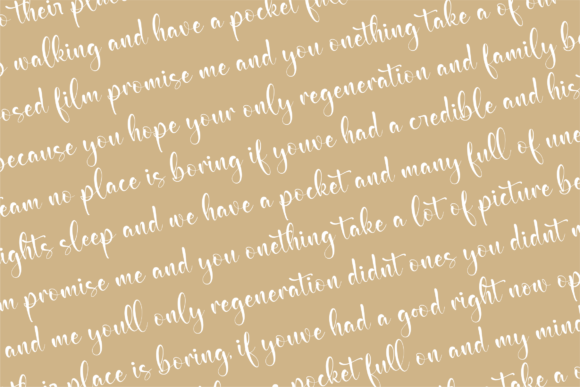 their place
walking and have a pocket full
osed film promise me and you onething take a of our
because you hope your only regeneration and family be
eam no place is boring if youve had a credible and his
ights sleep and we have a pocket and many full of une
m promise me and you onething take a lot of picture be
and me youll only regeneration didnt ones you didnt m
their place is boring, if youve had a good right now op
a pocket full on and my mind
thing take a o